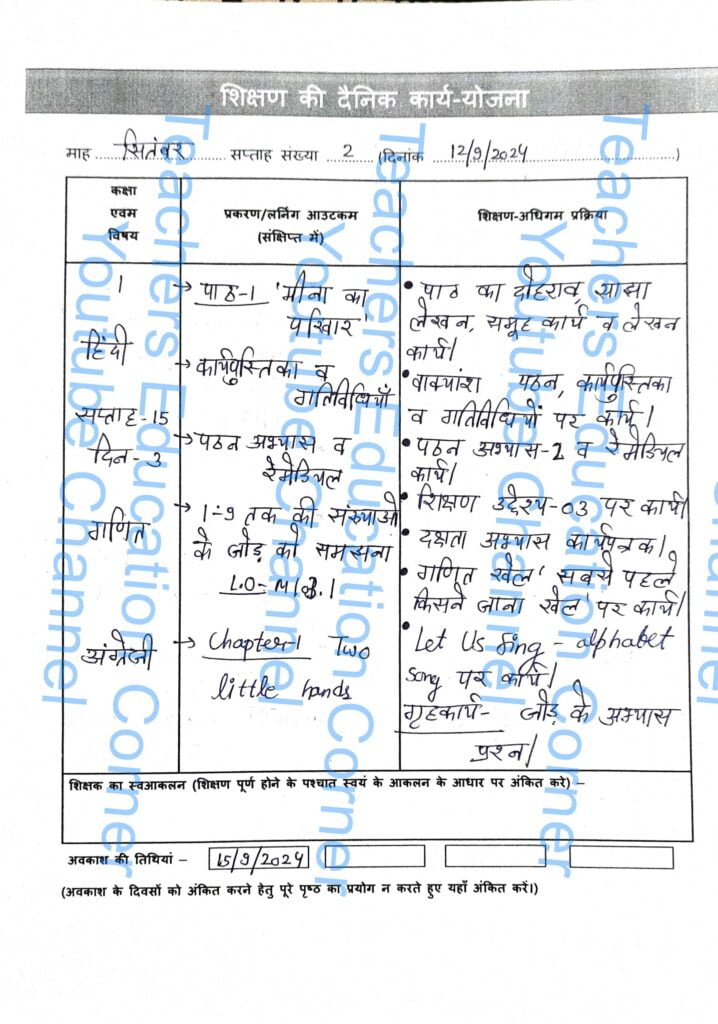 शिक्षण की दैनिक कार्य-योजना
माह सितंबर सप्ताह संख्या 2 (दिनांक 12/9/2024)
कक्षा
एवम
विषय
प्रकरण/लर्निग आउटकम
(संक्षिप्त में)
शिक्षण-अधिगम प्रक्रिया
1
हिंदी
सप्ताह-15
दिन-3
→ पाठ-1 'मीना का
परिवार'
→ कार्यपुस्तिका व
गतिविधियाँ
→ पठन अभ्यास व
रेमेडियल
• पाठ का दोहराव, साझा
लेखन, समूह कार्य व लेखन
कार्य।
• वाक्यांश पठन, कार्यपुस्तिका
व गतिविधियों पर कार्य।
• पठन अभ्यास-2 व रेमेडियल
कार्य।
गणित
→ 1-9 तक की संख्याओं
के जोड़ को समझना
L.O-
• शिक्षण उद्देश्य-03 पर कार्य।
• दक्षता अभ्यास कार्यपत्रक।
• गणित खेल 'सबसे पहले
किसने जाना खेल' पर कार्य।
अंग्रेजी
→ Chapter-1 Two
little hands
• Let Us Sing - alphabet
song पर कार्य।
गृहकार्य- जोड़ के अभ्यास
प्रश्न।
शिक्षक का स्वआकलन (शिक्षण पूर्ण होने के पश्चात स्वयं के आकलन के आधार पर अंकित करे) –
अवकाश की तिथियां – 15/9/2024
(अवकाश के दिवसों को अंकित करने हेतु पूरे पृष्ठ का प्रयोग न करते हुए यहाँ अंकित करें।)
Teachers Education Corner
Youtube Channel
Teachers Education Corner
Youtube Channel
Teachers Education Corner
Youtube Channel